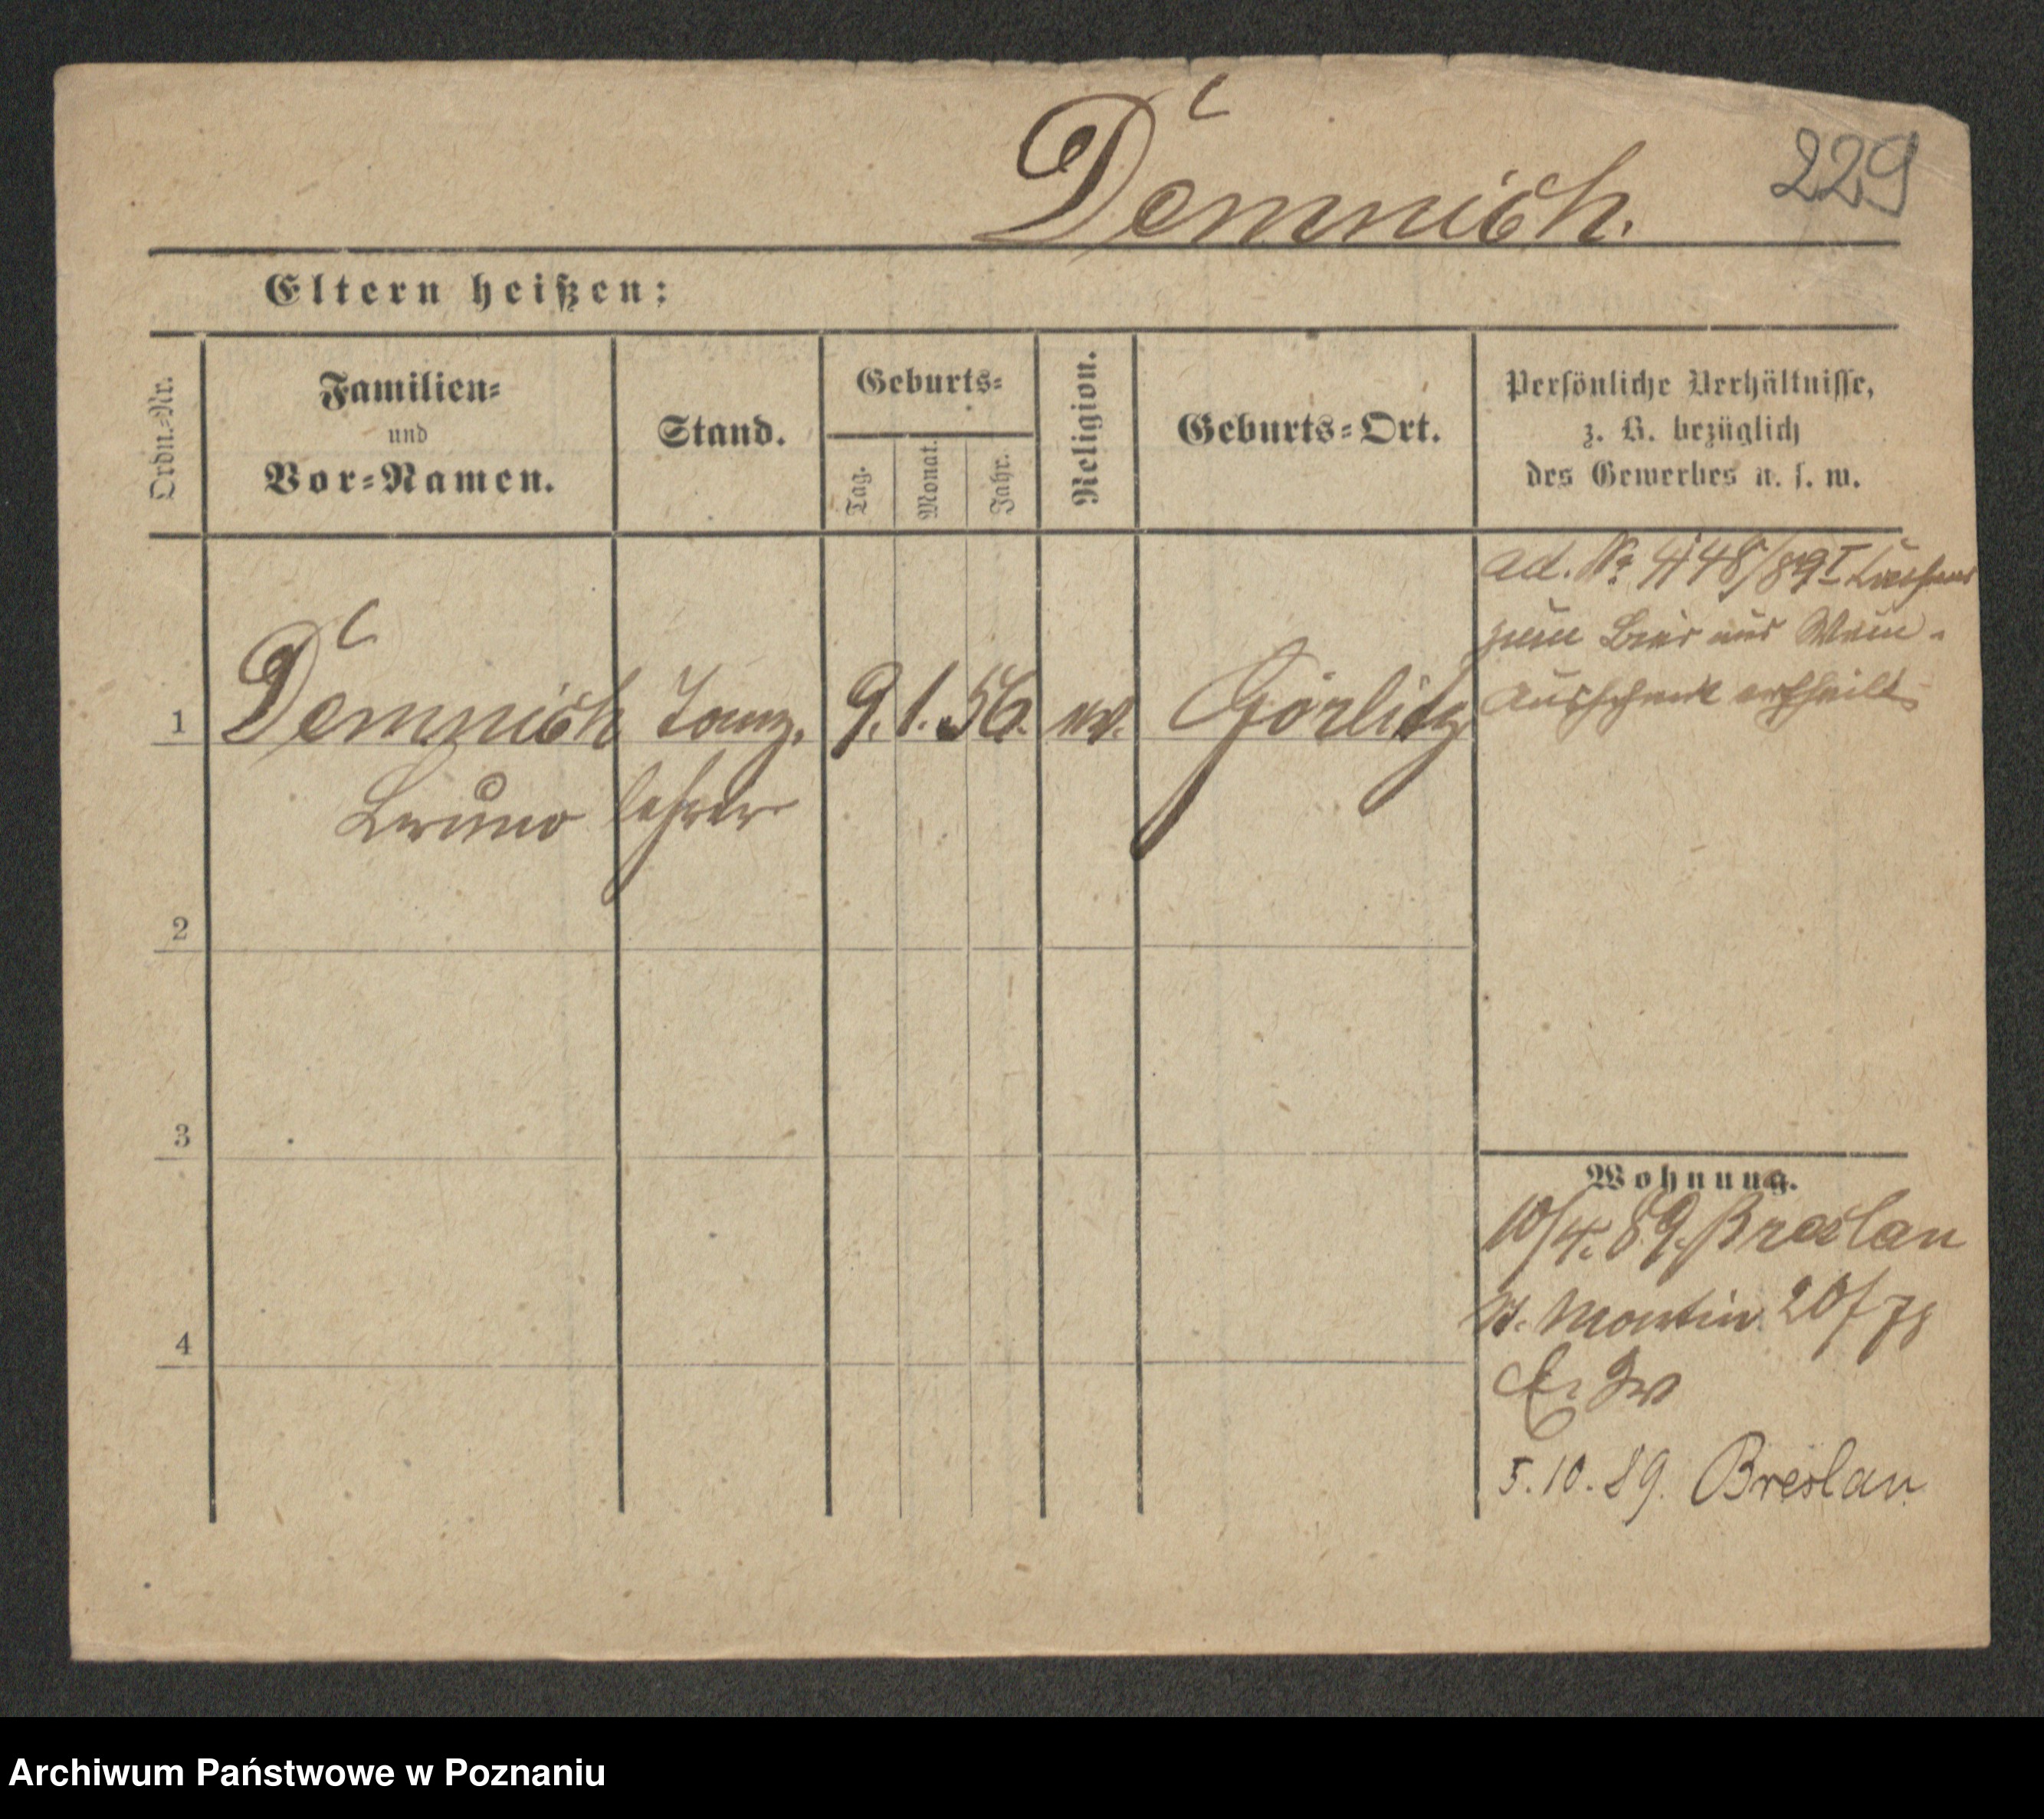 Demnich.
229
Eltern heißen:
Ordn.-Nr.
Familien-
und
Vor-Namen.
Stand.
Geburts-
Tag.
Monat.
Jahr.
Religion.
Geburts-Ort.
Persönliche Verhältnisse,
z. B. bezüglich
des Gewerbes u. s. w.
ad. No 4148/89 I
zum Bier und Wein-
Ausschank ertheilt
1 Demnich Tanz. 9. 1. 56. ev. Görlitz
Bruno lehrer
2
3
4
Wohnung.
10/4. 89. Breslau
St. Martin 20/78
5.10.89. Breslau
Archiwum Państwowe w Poznaniu